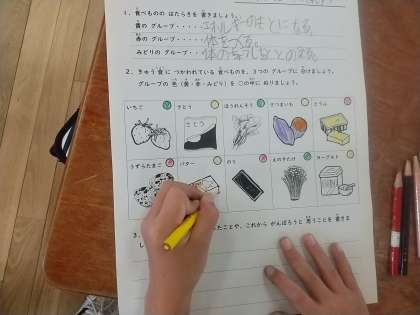 1．食べものの はたらきを 書きましょう。
黄の グループ・・・・・エネルギーのもとになる。
赤の グループ・・・・・体をつくる。
みどりの グループ・・・・・体の
2．きゅう食に つかわれている 食べものを、3つの グループに 分けましょう。
グループの 色（黄・赤・みどり）を ○の中に ぬりましょう。
いちご さとう ほうれんそう さつまいも とうふ
さとう
うずらたまご バター のり えのきたけ ヨーグルト
3．
たことや、これから がんばろうと 思うことを 書きま
し